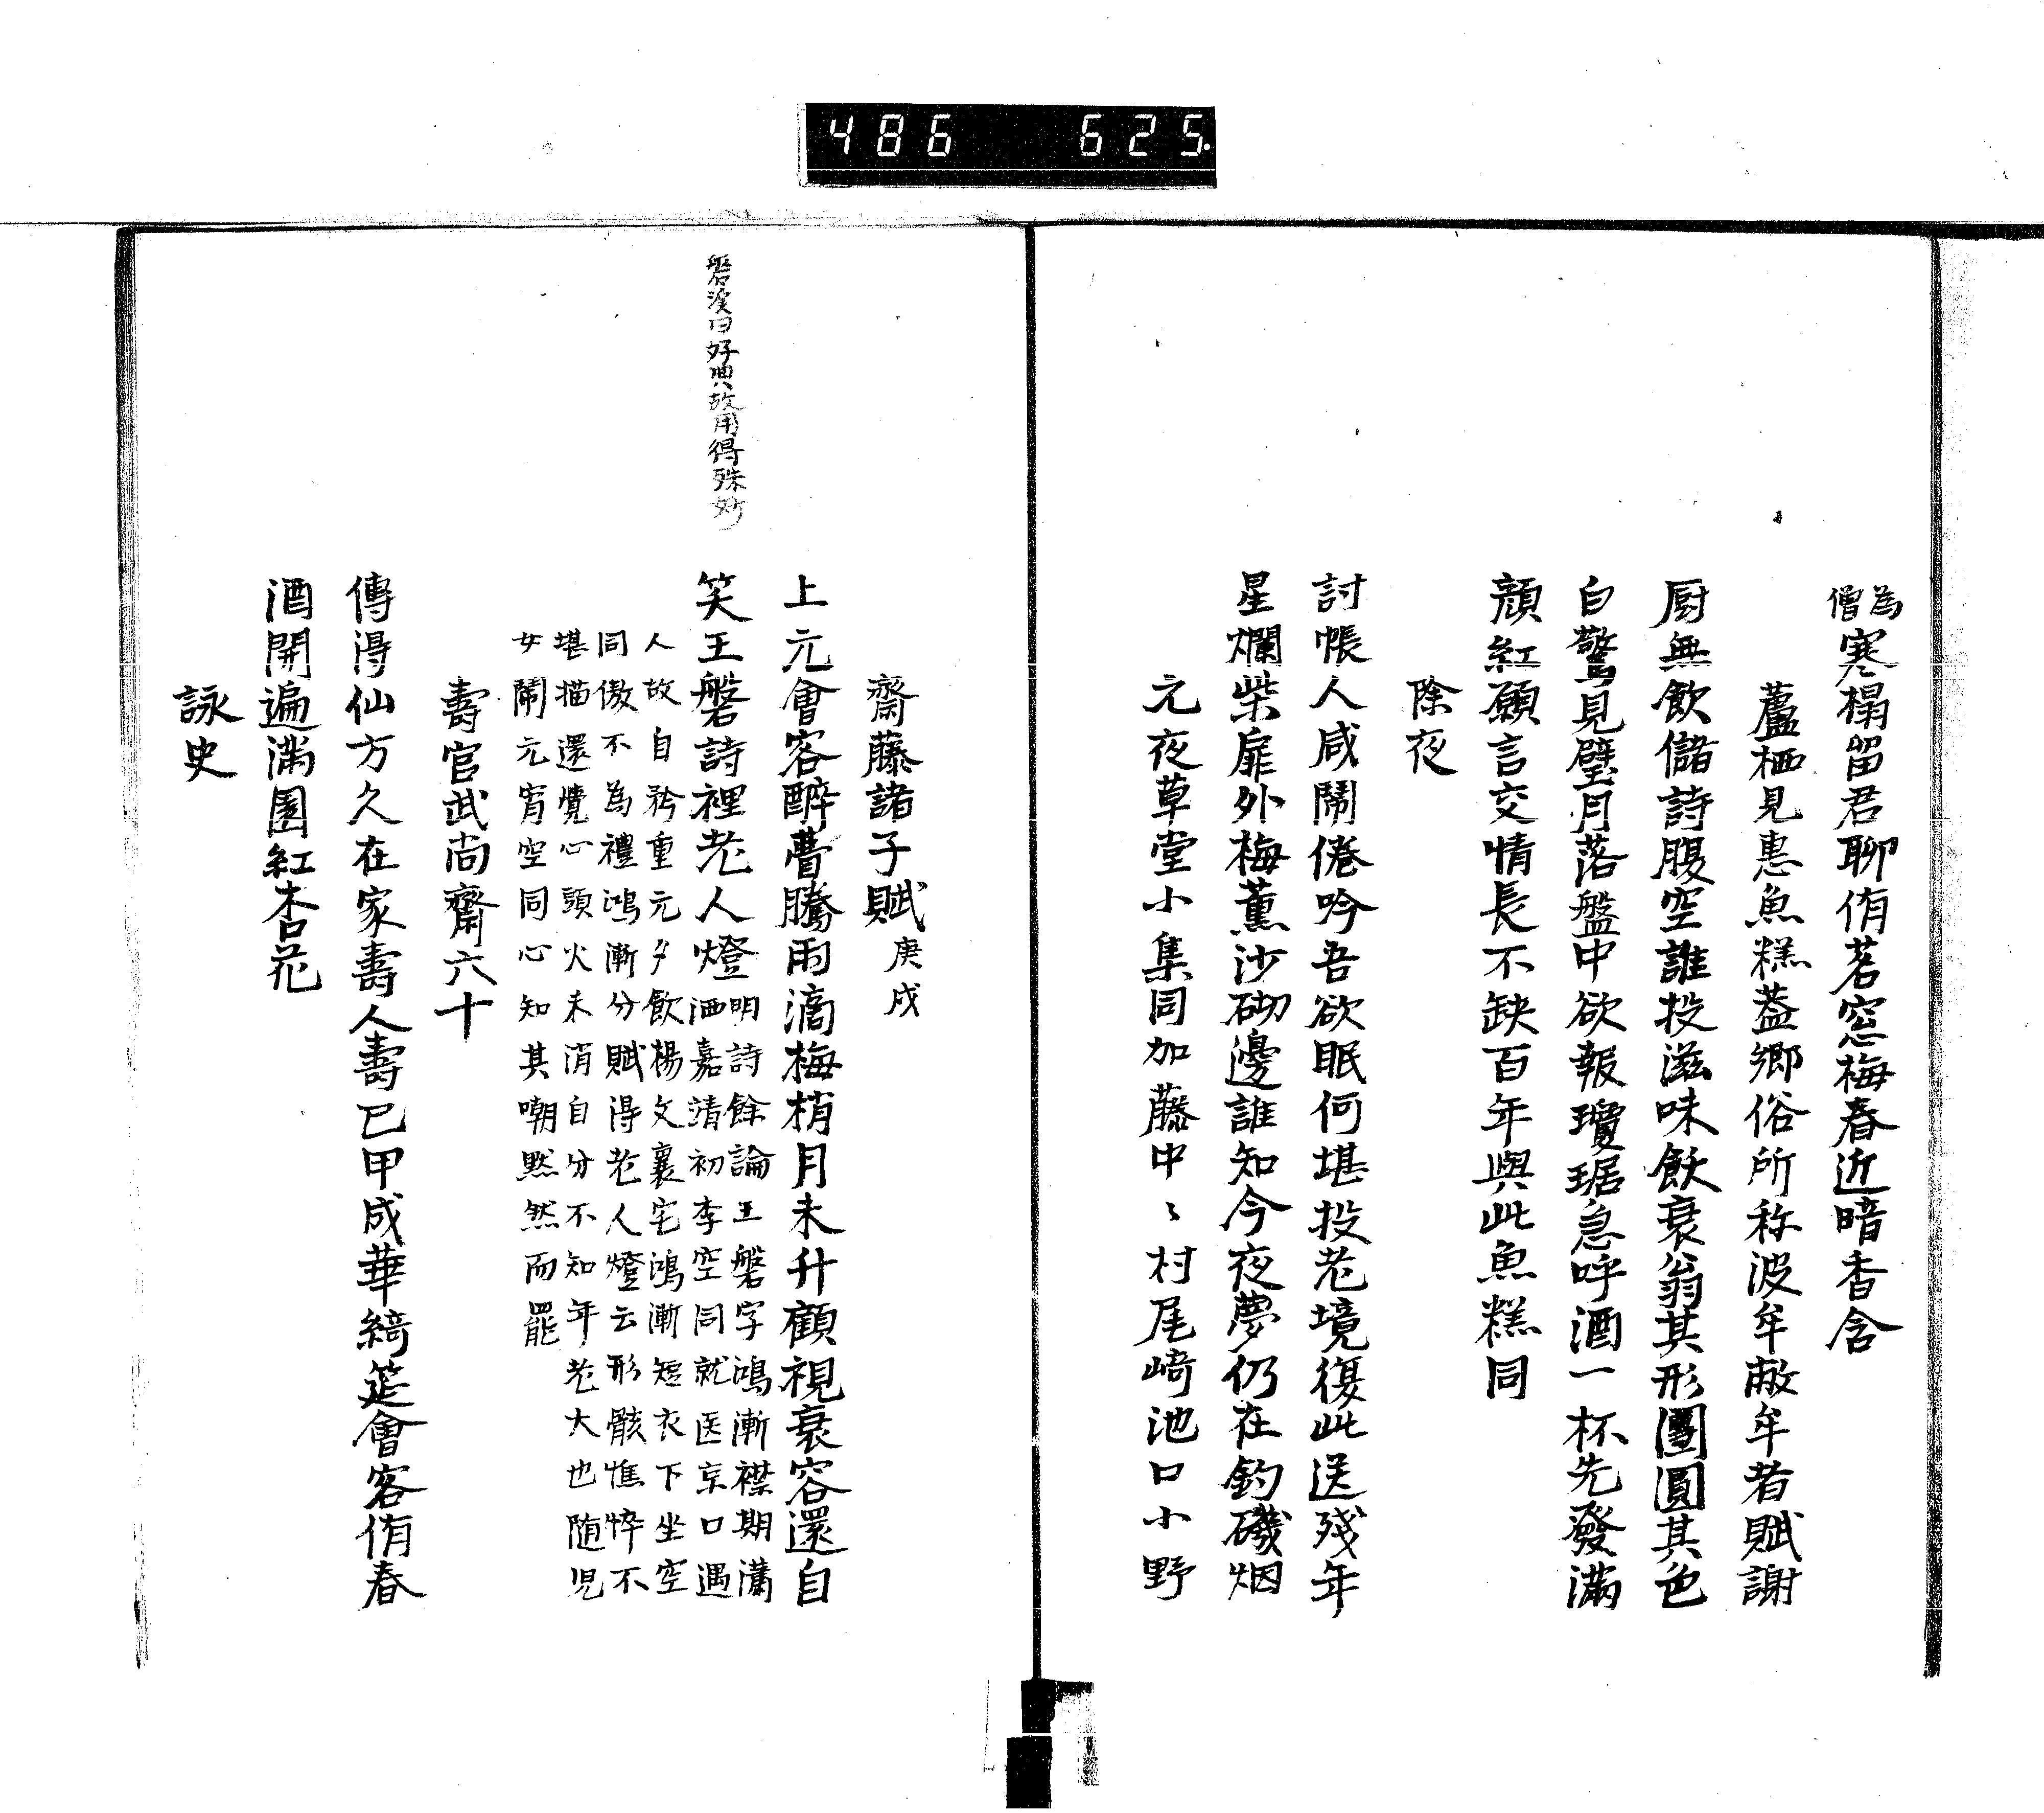 486 625
為僧寒榻留君聊侑茗窓梅春近暗香含
蘆栖見惠魚糕葢鄉俗所称波牟敝牟者賦謝
厨無飲儲詩腹空誰投滋味飫衰翁其形團圓其色
白驚見璧月落盤中欲報瓊琚急呼酒一杯先發滿
顔紅願言交情長不缺百年與此魚糕同
除夜
討帳人咸鬧倦吟吾欲眠何堪投老境復此送殘年
星爛柴扉外梅薫沙砌邊誰知今夜夢仍在釣磯烟
元夜草堂小集同加藤中〻村尾崎池口小野
齋藤諸子賦庚戌
上元會客醉瞢騰雨滴梅梢月未升顧視衰容還自
笑王磐詩裡老人燈明詩餘論王磐字鴻漸襟期瀟
洒嘉靖初李空同就医京口遇
人故自矜重元夕飲楊文襄宅鴻漸短衣下坐空
同傲不為禮鴻漸分賦得老人燈云形骸憔悴不
堪描還覺心頭火未消自分不知年老大也随児
女鬧元宵空同心知其嘲黙然而罷
磐溪曰好典故用得殊妙
壽官武尚齋六十
傳得仙方久在家壽人壽已甲成華綺筵會客侑春
酒開遍滿園紅杏花
詠史